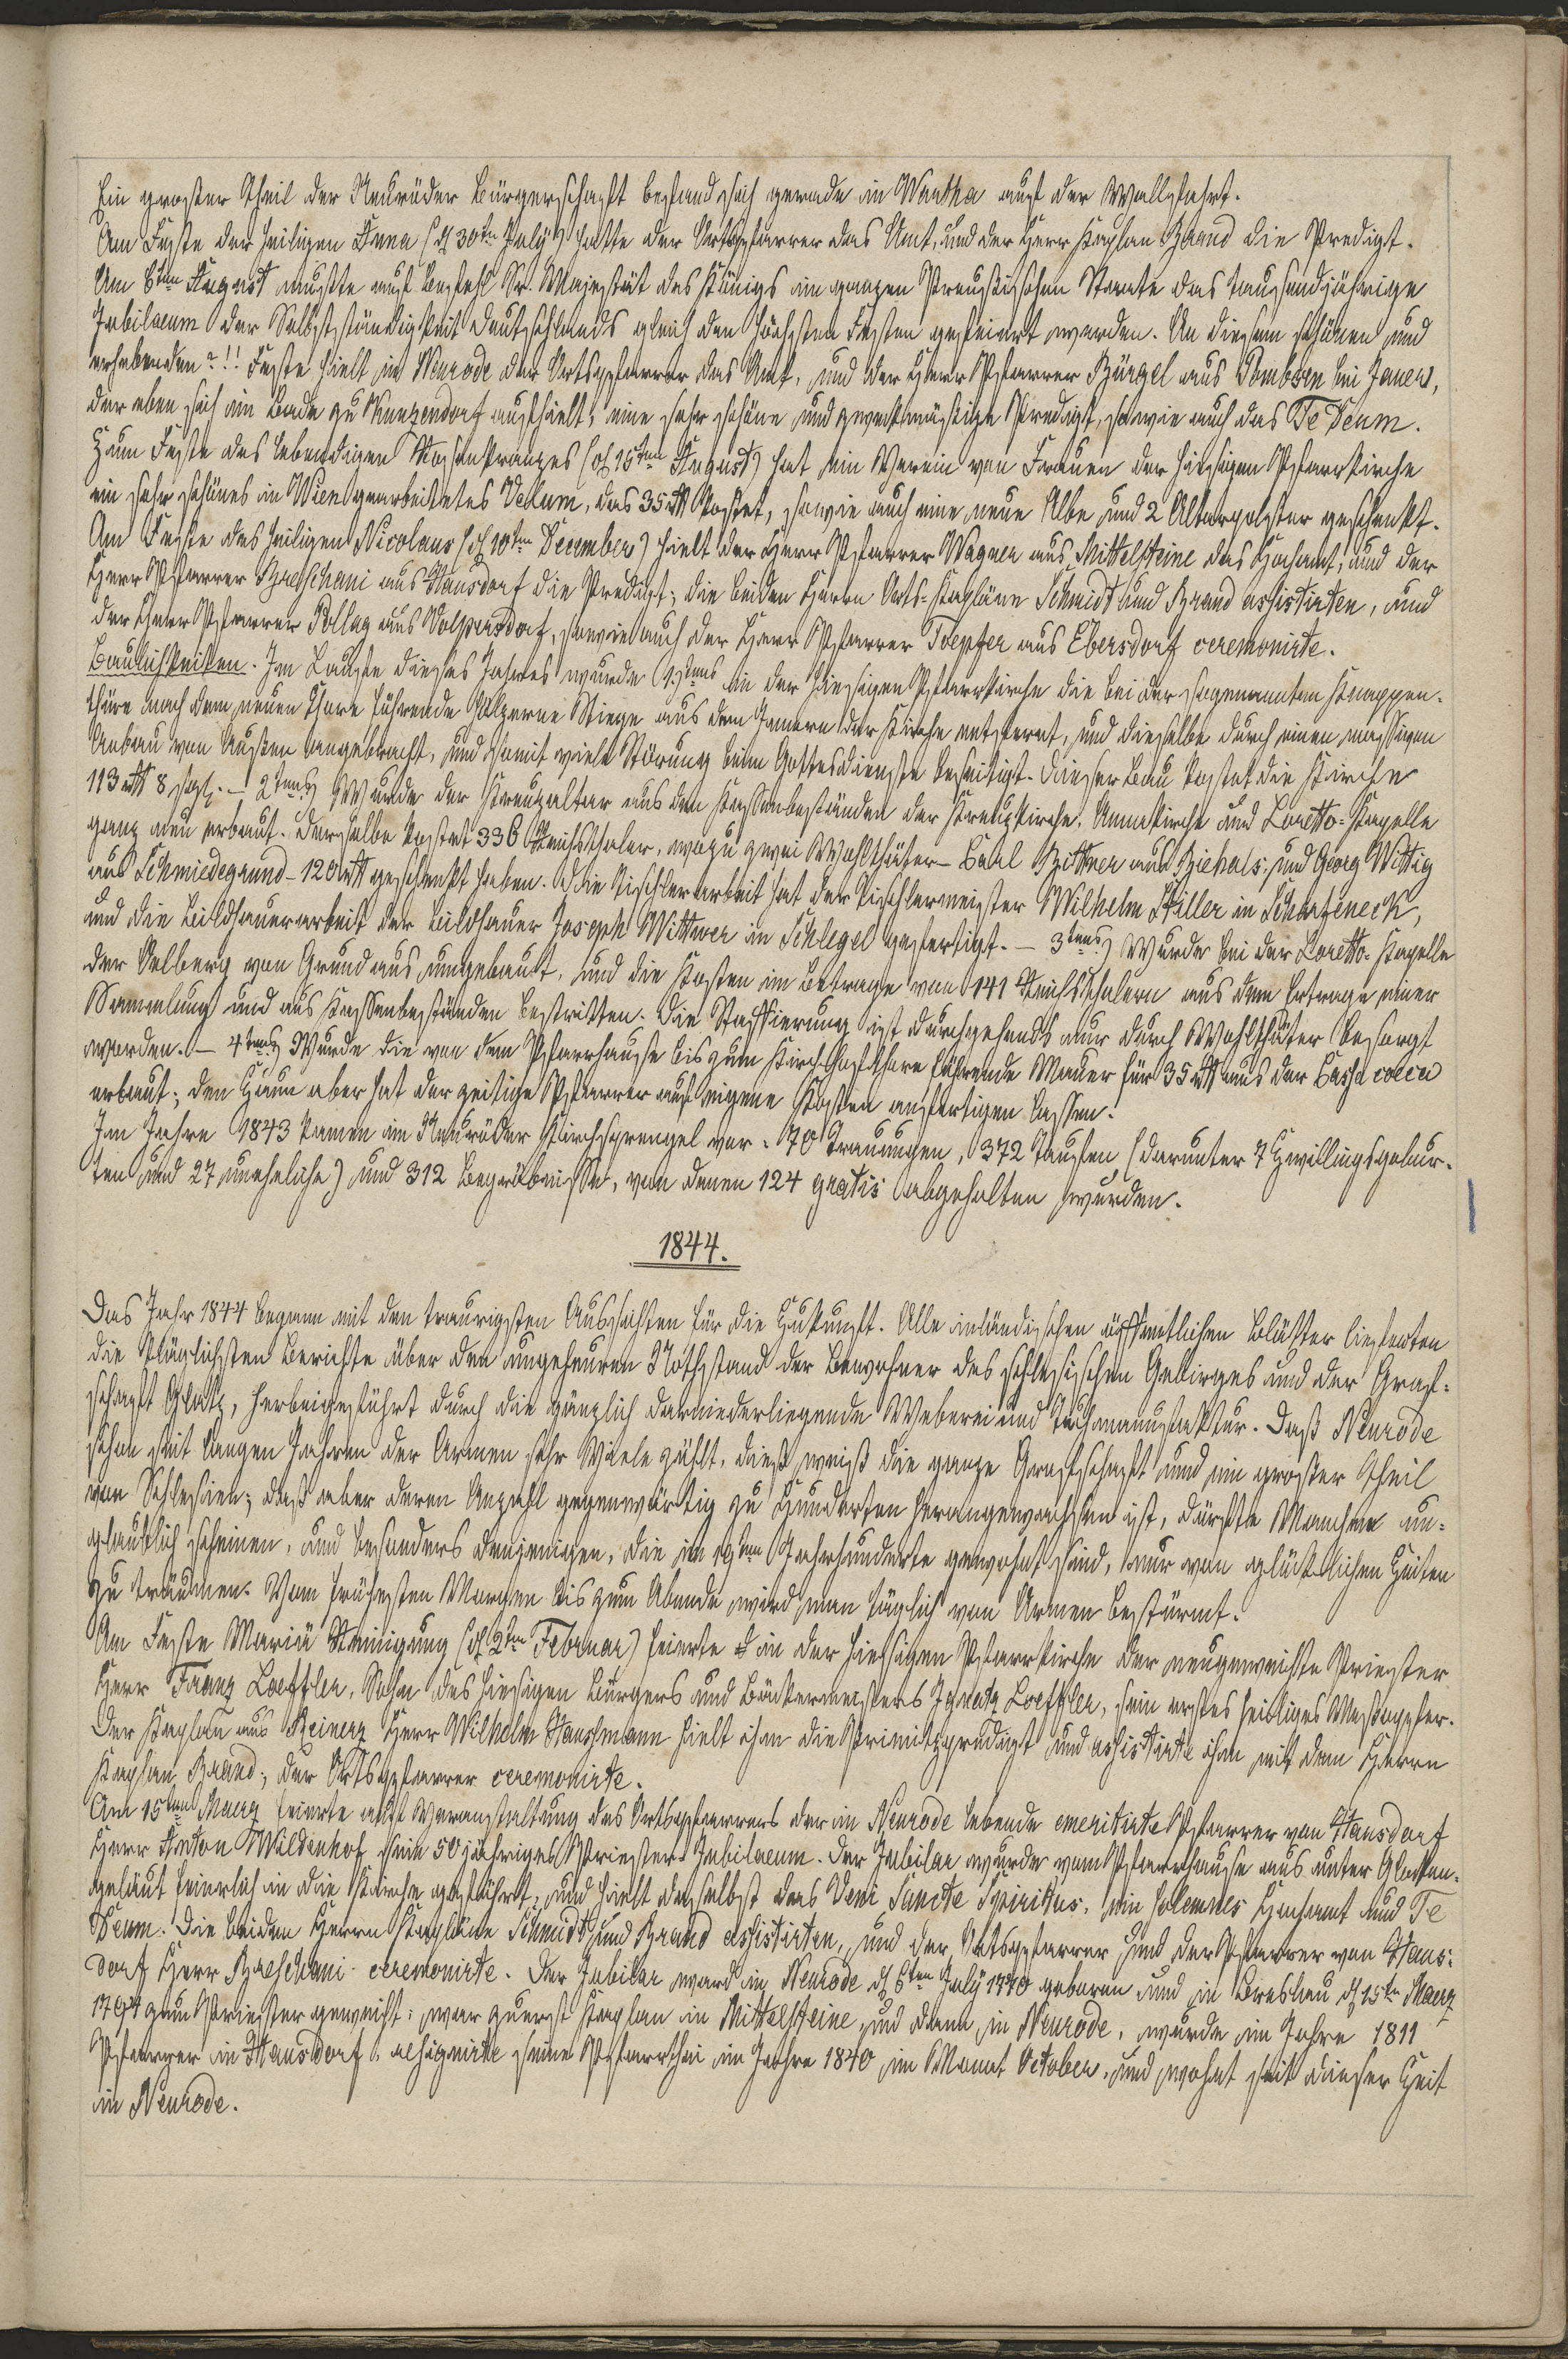 Ein grosser Theil der Neuroder Bürgerschaft befand sich gerade in Wartha auf der Wallfahrt.
Am Feste der heiligen Anna (d. 30ten July) hatte der Ortspfarrer das Amt, und der Herr Kaplan Brand die Predigt.
Am 6ten August mußte auf Befehl Sr. Majestät des Königs im ganzen Preußischen Staate das tausendjährige
Jubilaeum der Selbstständigkeit Deutschlands gleich den höchsten Festen gefeiert werden. An diesem schönen und
erhabenden?!! Feste hielt in Neurode der Ortspfarrer das Amt, und der Herr Pfarrer Bürgel aus Pombsen bei Jauer,
der eben sich im Bade zu Kunzendorf aufhielt, eine sehr schöne und zweckmäßige Predigt, sowie auch das Te Deum.
Zum Feste des lebendigen Rosenkranzes (d. 15ten August) hat ein Verein von Frauen der hiesigen Pfarrkirche
ein sehr schönes in Wien gearbeitetes Velum, das 35 rtl kostet, sowie auch eine neue Albe und 2 Altarpolster geschenkt.
Am Feste des heiligen Nicolaus (d. 10ten December) hielt der Herr Pfarrer Wagner aus Mittelsteine das Hochamt, und der
Herr Pfarrer Breschani aus Hausdorf die Predigt; die beiden Herrn Orts-Kapläne Schmidt und Brand assistirten, und
der Herr Pfarrer Pollag aus Volpersdorf, sowie auch der Herr Pfarrer Toepfer aus Ebersdorf ceremonirte.
Baulichkeiten. Im Laufe dieses Jahres wurde 1stens in der hiesigen Pfarrkirche die bei der sogenannten Knappen-
thüre nach dem neuen Chore führende hölzerne Stiege aus dem Innern der Kirche entfernt, und dieselbe durch einen massigen
Anbau von Außen angebracht, und somit viele Störung beim Gottesdienste beseitigt. Dieser Bau kostet die Kirche
113 rtl 8 sgl. – 2tens) Wurde der Kreuzaltar aus den Kassenbeständen der Kreuzkirche, Annakirche und Loretto-Kapelle
ganz neu erbaut. Derselbe kostet 336 Reichsthaler, wozu zwei Wohlthäter – Carl Bittner aus Biehals, und Georg Wittig
aus Schmiedegrund – 120 rtl geschenkt haben. Die Tischlerarbeit hat der Tischlermeister Wilhelm Hiller in Scharfeneck,
und die Bildhauerarbeit der Bildhauer Joseph Wittwer in Schlegel gefertigt. – 3tens) Wurde bei der Loretto-Kapelle
der Oelberg von Grund aus umgebaut, und die Kosten im Betrage von 141 Reichsthalern aus dem Ertrage einer
Sammlung und aus Kassenbeständen bestritten. Die Staffierung ist durchgehends nur durch Wohlthäter besorgt
worden. – 4tens) Wurde die von dem Pfarrhause bis zum Kirchhofthore führende Mauer für 35 rtl aus der Cassa eccla
erbaut; den Zaun aber hat der zeitige Pfarrer auf eigene Kosten anfertigen lassen.
Im Jahre 1843 kamen im Neuroder Kirchsprengel vor: 70 Trauungen, 372 Taufen (darunter 7 Zwillingsgebur-
ten und 27 uneheliche) und 312 Begräbnisse, von denen 124 gratis abgehalten wurden.
1844.
Das Jahr 1844 begann mit den traurigsten Aussichten für die Zukunft. Alle inländischen öffentlichen Blätter lieferten
die kläglichsten Berichte über den ungeheuren Nothstand der Bewohner des schlesischen Gebirges und der Graf-
schaft Glatz, herbeigeführt durch die gänzlich darniederliegende Weberei und Tuchmanufaktur. Daß Neurode
schon seit langen Jahren der Armen sehr Viele zählt, dieß weiß die ganze Grafschaft und ein großer Theil
von Schlesien; daß aber deren Anzahl gegenwärtig zu Hunderten herangewachsen ist, dürfte Manchem un-
glaublich scheinen, und besonders denjenigen, die im 19ten Jahrhunderte gewohnt sind, nur von glücklichen Zeiten
zu träumen. Vom frühesten Morgen bis zum Abende wird man täglich von Armen bestürmt.
Am Feste Mariä Reinigung (d. 2ten Februar) feierte in der hiesigen Pfarrkirche der neugeweihte Priester
Herr Franz Loeffler, Sohn des hiesigen Bürgers und Bäckermeisters Ignatz Loeffler, sein erstes heiliges Meßopfer.
Der Kaplan aus Reinerz Herr Wilhelm Hauschmann hielt ihm die Primitzpredigt und assistirte ihm mit dem Herrn
Kaplan Brand; der Ortspfarrer ceremonirte.
Am 15ten Maerz feierte auf Veranstaltung des Ortspfarrers der in Neurode lebende emeritirte Pfarrer von Hausdorf
Herr Anton Wildenhof sein 50 jähriges Priester-Jubilaeum. Der Jubilar wurde vom Pfarrhause aus unter Glocken-
geläut feierlich in die Kirche geführt, und hielt daselbst das Veni Sancte Spiritus, ein solemnes Hochamt und Te
Deum. Die beiden Herrn Kapläne Schmidt und Brand assistirten, und der Ortspfarrer und der Pfarrer von Haus-
dorf Herr Breschani ceremonirte. Der Jubilar ward in Neurode d. 6ten July 1770 geboren und in Breslau d. 15ten Maerz
1794 zum Priester geweiht; war zuerst Kaplan in Mittelsteine und dann in Neurode, wurde im Jahre 1811
Pfarrer in Hausdorf, resignirte seine Pfarrthei im Jahre 1840 im Monat October, und wohnt seit dieser Zeit
in Neurode.